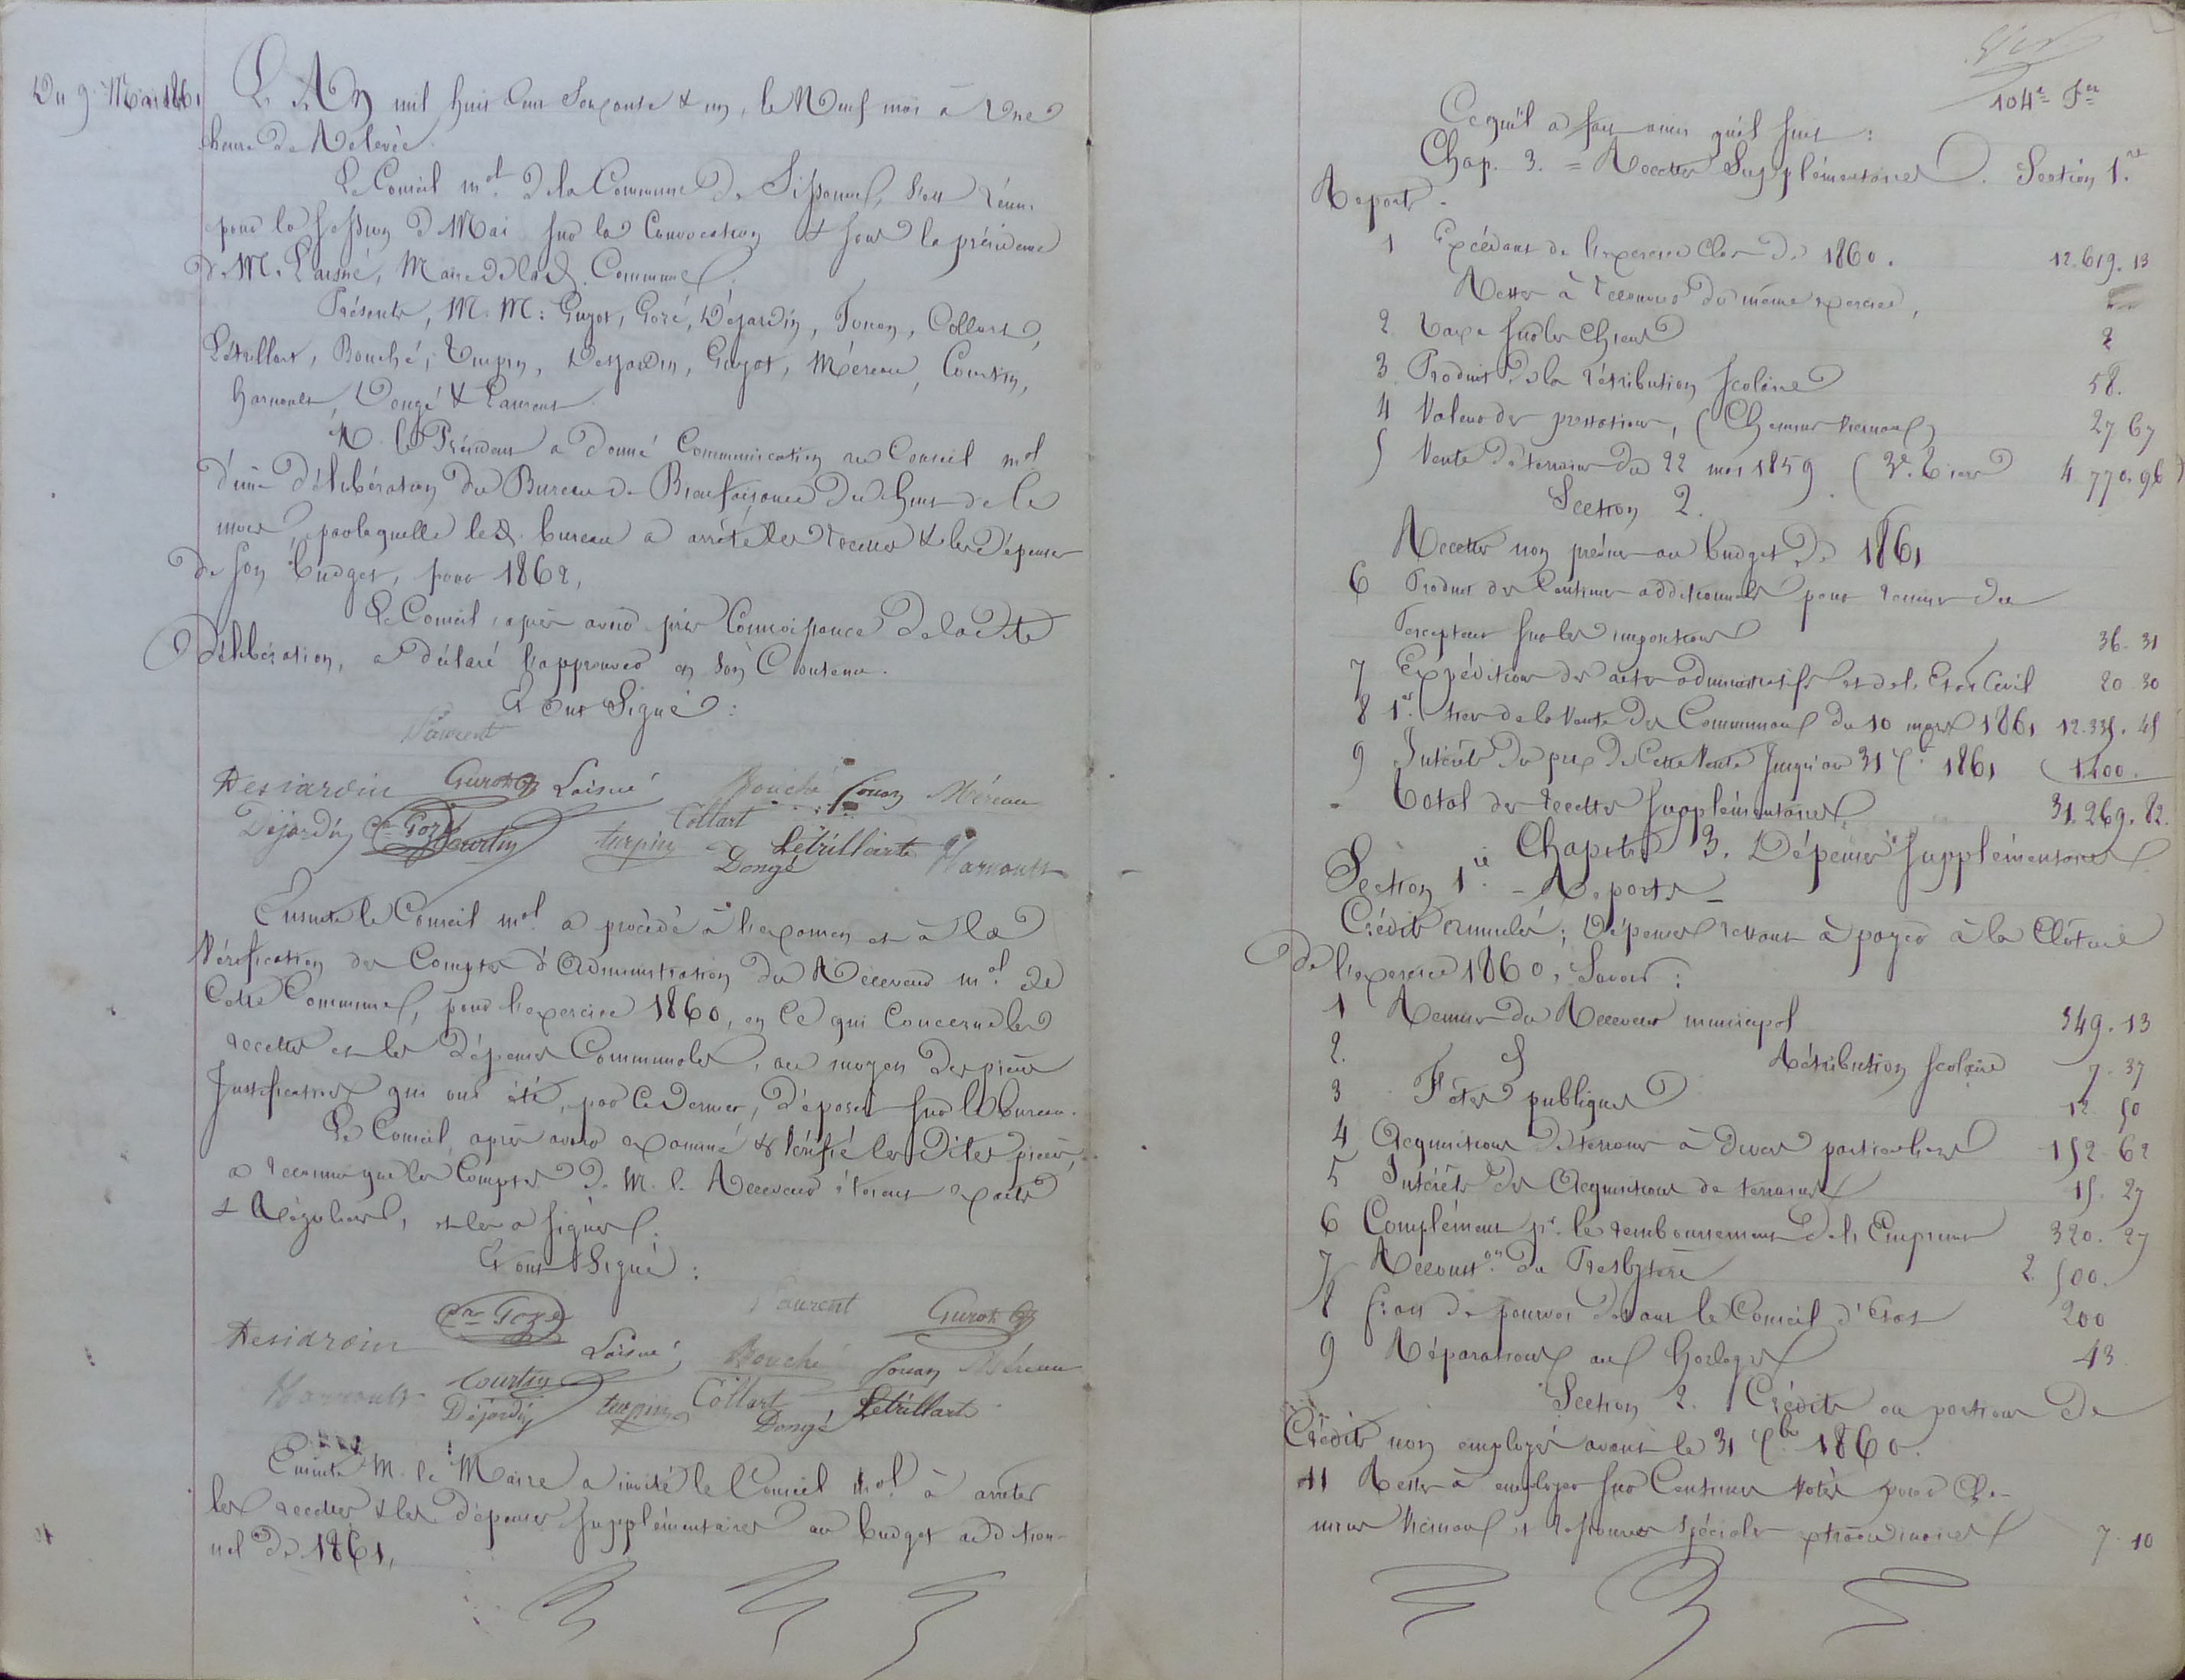 Du 9 Mai 1861
L'An mil huit Cent Soixante & un, le Neuf mai à Une
heure de Relevée.
Le Conseil mal. de la Commune de Sissonne, s'est réuni
pour la session de Mai sur la Convocation & sous la présidence
de M. Laisné, Maire de lad. Commune.
Présents, M. M: Guyot, Gozé, Déjardin, Fouan, Collart,
Létrillart, Bouché, Turpin, Desjardin, Guyot, Méreau, Courtin,
Harnoult, Dongé & Laurent.
M. le Président a donné Communication au Conseil mal
d'une délibération du Bureau de Bienfaisance du huit de ce
mois, par laquelle led. bureau a arrêté les recettes & les dépenses
de son budget, pour 1862,
Le Conseil, après avoir pris Connaissance de la dite
délibération, a déclaré l'approuver en son Contenu.
Et ont Signé :
Laurent
Desjardin Guyot Laisné Bouché Fouan Méreau
Déjardin Gozé Courtin turpin Collart Létrillart
Dongé Harnoult
Ensuite le Conseil mal. a procédé à l'examen et à la
Vérification des Comptes d'Administration du Receveur mal. de
Cette Commune, pour l'exercice 1860, en Ce qui Concerne les
recettes et les dépenses Communales, au moyen des pièces
Justificatives qui ont été, par Ce dernier, déposées sur le bureau.
Le Conseil, après avoir examiné & vérifié les dites pièces,
a reconnu que les Comptes de M. le Receveur étaient exacts
& Réguliers, et les a signés.
Et ont Signé :
Gozé Laurent Guyot
Desjardin Laisné Bouché Fouan Méreau
Harnoult Courtin
Déjardin turpin Collart Dongé Létrillart
Ensuite M. le Maire a invité le Conseil mal. à arrêter
les recettes & les dépenses supplémentaires au budget addition-
nel de 1861,
104e Fet
Ce qu'il a fait ainsi qu'il suit :
Chap. 3. = Recettes Supplémentaires. Section 1.re
Reports.
1 Excédant de l'exercice Clos de 1860. 12.619.13
Restes à recouvrer du même exercice,
2 Taxe sur les Chiens 2
3 Produit de la rétribution scolaire 58.
4 Valeur des prestations, (Chemins vicinaux) 27 67
5 Vente de terrains du 22 mai 1859 (3e. tiers) 4.770.96
Section 2.
Recettes non prévues au budget de 1861
6 Produit des Centimes additionnels pour remises du
Percepteur sur les impositions 36.31
7 Expéditions des actes administratifs et de l'Etat Civil 20.30
8 1er. tiers de la Vente des Communaux du 10 mars 1861 12.335.45
9 Intérêts du prix de Cette Vente Jusqu'au 31 Xbre 1861 1400.
Total des recettes supplémentaires 31.269.82.
Chapitre 3. Dépenses supplémentaires
Section 1re. - Reports -
Crédits annulés; Dépenses restant à payer à la Clôture
de l'exercice 1860, Savoir :
1 Remises du Receveur municipal 349.13
2. d Rétribution scolaire 7.37
3 Fêtes publiques 12.50
4 Acquisitions de terrains à divers particuliers 152.62
5 Intérêts des Acquisitions de terrains 15.27
6 Complément pr. le remboursement de l'Emprunt 320.27
7 Reconston. du Presbytère 2.500.
8 frais de pourvoi devant le Conseil d'Etat 200
9 Réparations aux horloges 43
Section 2. Crédits ou portions de
Crédits non employés avant le 31 Xbre 1860.
11 Restes à employer sur Centimes votés pour Che-
mins Vicinaux et ressources spéciales extraordinaires 7.10